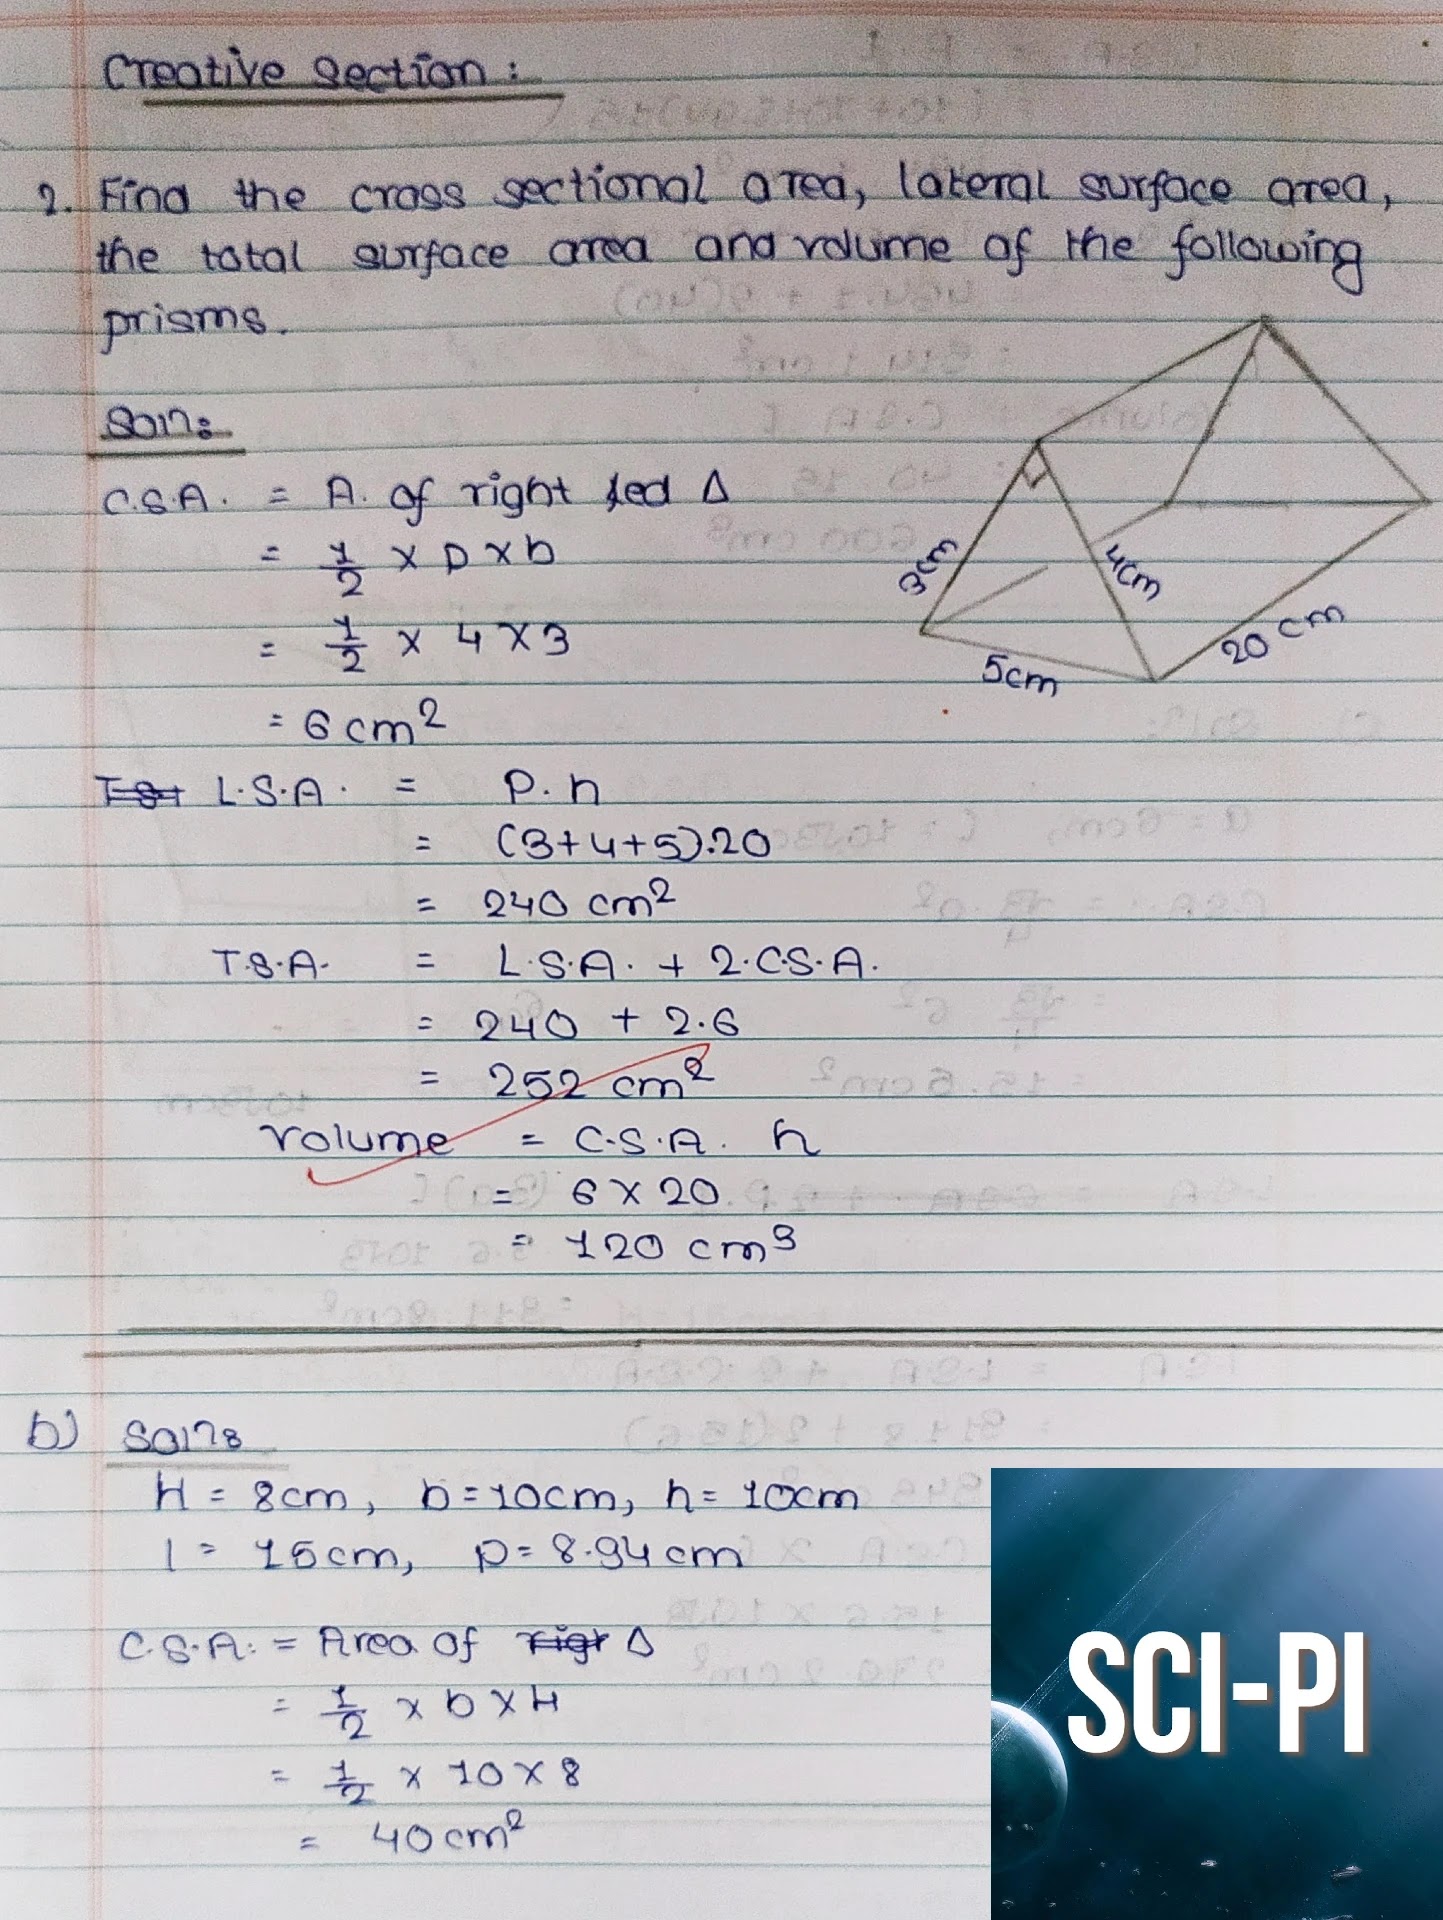 Creative Section:
2. Find the cross sectional area, lateral surface area,
the total surface area and volume of the following
prisms.
Soln:
C.S.A. = A. of right ∠ed Δ
= 1/2 × p × b
= 1/2 × 4 × 3
= 6 cm²
3cm
4cm
5cm
20 cm
T.S.A L.S.A. = P.h
= (3+4+5).20
= 240 cm²
T.S.A. = L.S.A. + 2.C.S.A.
= 240 + 2.6
= 252 cm²
Volume = C.S.A. h
= 6 × 20
= 120 cm³
b) Soln:
H = 8cm, b=10cm, h= 10cm
l = 15cm, p= 8.94 cm
C.S.A. = Area of rigt Δ
= 1/2 × b × H
= 1/2 × 10 × 8
= 40 cm²
SCI-PI